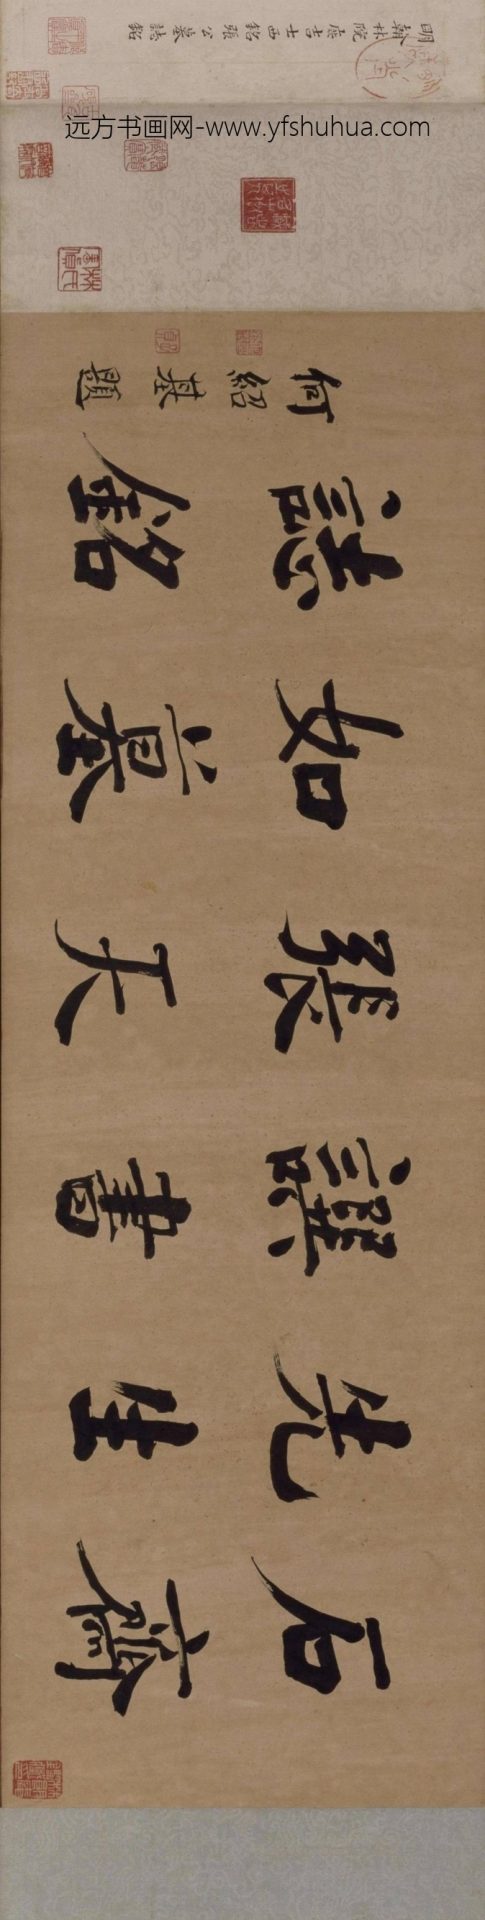 石齋
先生
譔書
張天
如墓
誌銘
何紹基題
明翰林院庶吉士西銘張公墓誌銘
远方书画网-www.yfshuhua.com